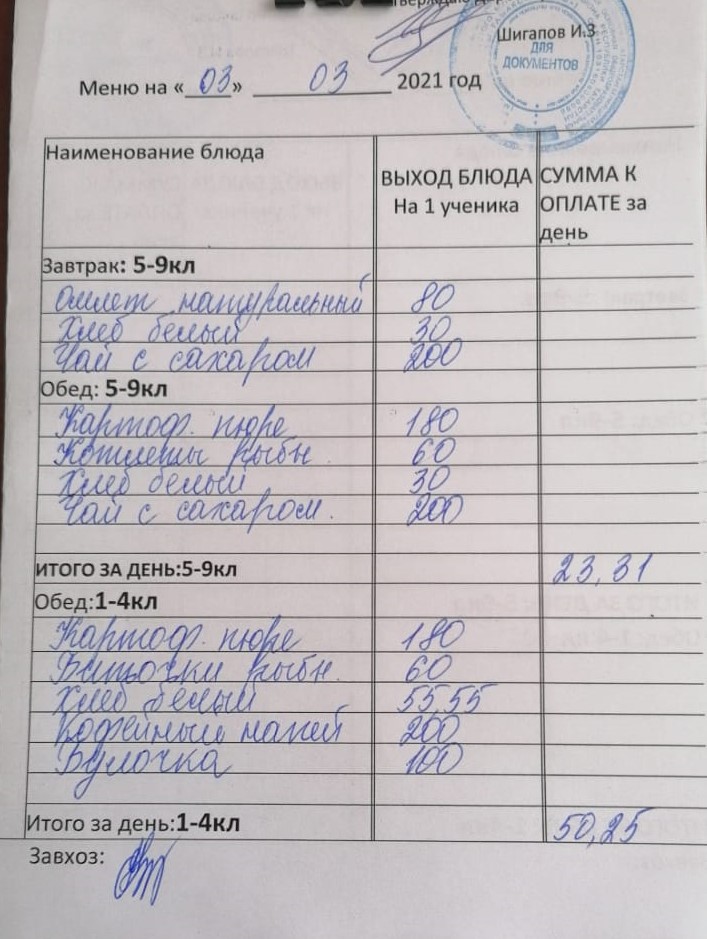 Шигапов И.З
ДЛЯ
ДОКУМЕНТОВ
Меню на «03» 03 2021 год
Наименование блюда
ВЫХОД БЛЮДА
На 1 ученика
СУММА К
ОПЛАТЕ за
день
Завтрак: 5-9кл
Омлет натуральный 80
Хлеб белый 30
Чай с сахаром 200
Обед: 5-9кл
Картоф. пюре 180
Котлеты рыбн. 60
Хлеб белый 30
Чай с сахаром. 200
ИТОГО ЗА ДЕНЬ:5-9кл 23,31
Обед:1-4кл
Картоф. пюре 180
Биточки рыбн. 60
Хлеб белый 55,55
Кофейный напей 200
Булочка 100
Итого за день:1-4кл 50,25
Завхоз: